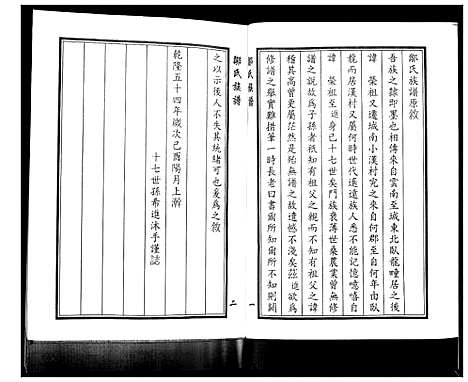 鄒氏族譜原敘
吾族之隸即墨也相傳來自雲南至城東北臥龍疃居之後
諱榮祖又遷城南小漢村究之來自何郡至自何年由臥
龍而居漢村又屬何時世代遙遠族人悉不能記憶嘻自
諱榮祖至進身已十七世矣門族衰薄世桑農業曾無修
譜之說故為子孫者祇知有祖父之親而不知有祖父之諱
稽其高曾更屬茫然是殆無譜之故遺憾不淺矣茲進欲為
修譜之舉實難操筆一時長老曰書爾所知爾所不知則闕
一
鄒氏族譜
之以示後人不失其統緒可也爰為之敘
乾隆五十四年歲次己酉陽月上澣
十七世孫希進沐手謹誌
鄒氏族譜
二